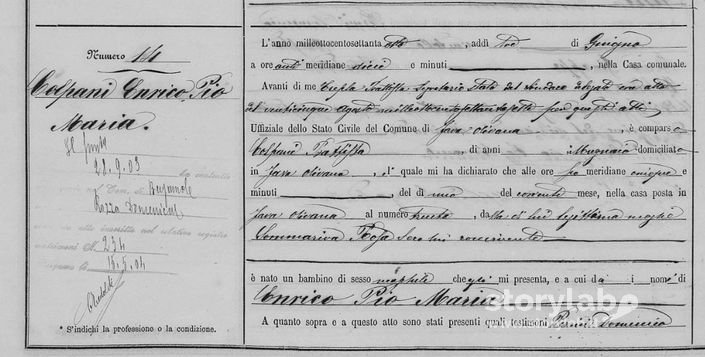 Numero 14
Colpani Enrico Pio
Maria.
28.9.03
Bergamo
Rozza Domenica
matrimoni N. 234
18.5.04
* S'indichi la professione o la condizione.
L'anno milleottocentosettanta otto, addì tre di Giugno
a ore anti meridiane dieci e minuti , nella Casa comunale.
Avanti di me Battista Segretario delegato con atto
del venticinque Agosto milleottocentosettantasette per questi atti
Uffiziale dello Stato Civile del Comune di , è comparso
Colpani Battista di anni Mugnaio domiciliato
in , il quale mi ha dichiarato che alle ore meridiane cinque e
minuti , del dì uno del corrente mese, nella casa posta in
al numero trenta, da di lui legittima moglie
Sommariva Rosa seco lui convivente
è nato un bambino di sesso maschile che egli mi presenta, e a cui dà i nomi di
Enrico Pio Maria
A quanto sopra e a questo atto sono stati presenti quali testimoni Domenico
storylab